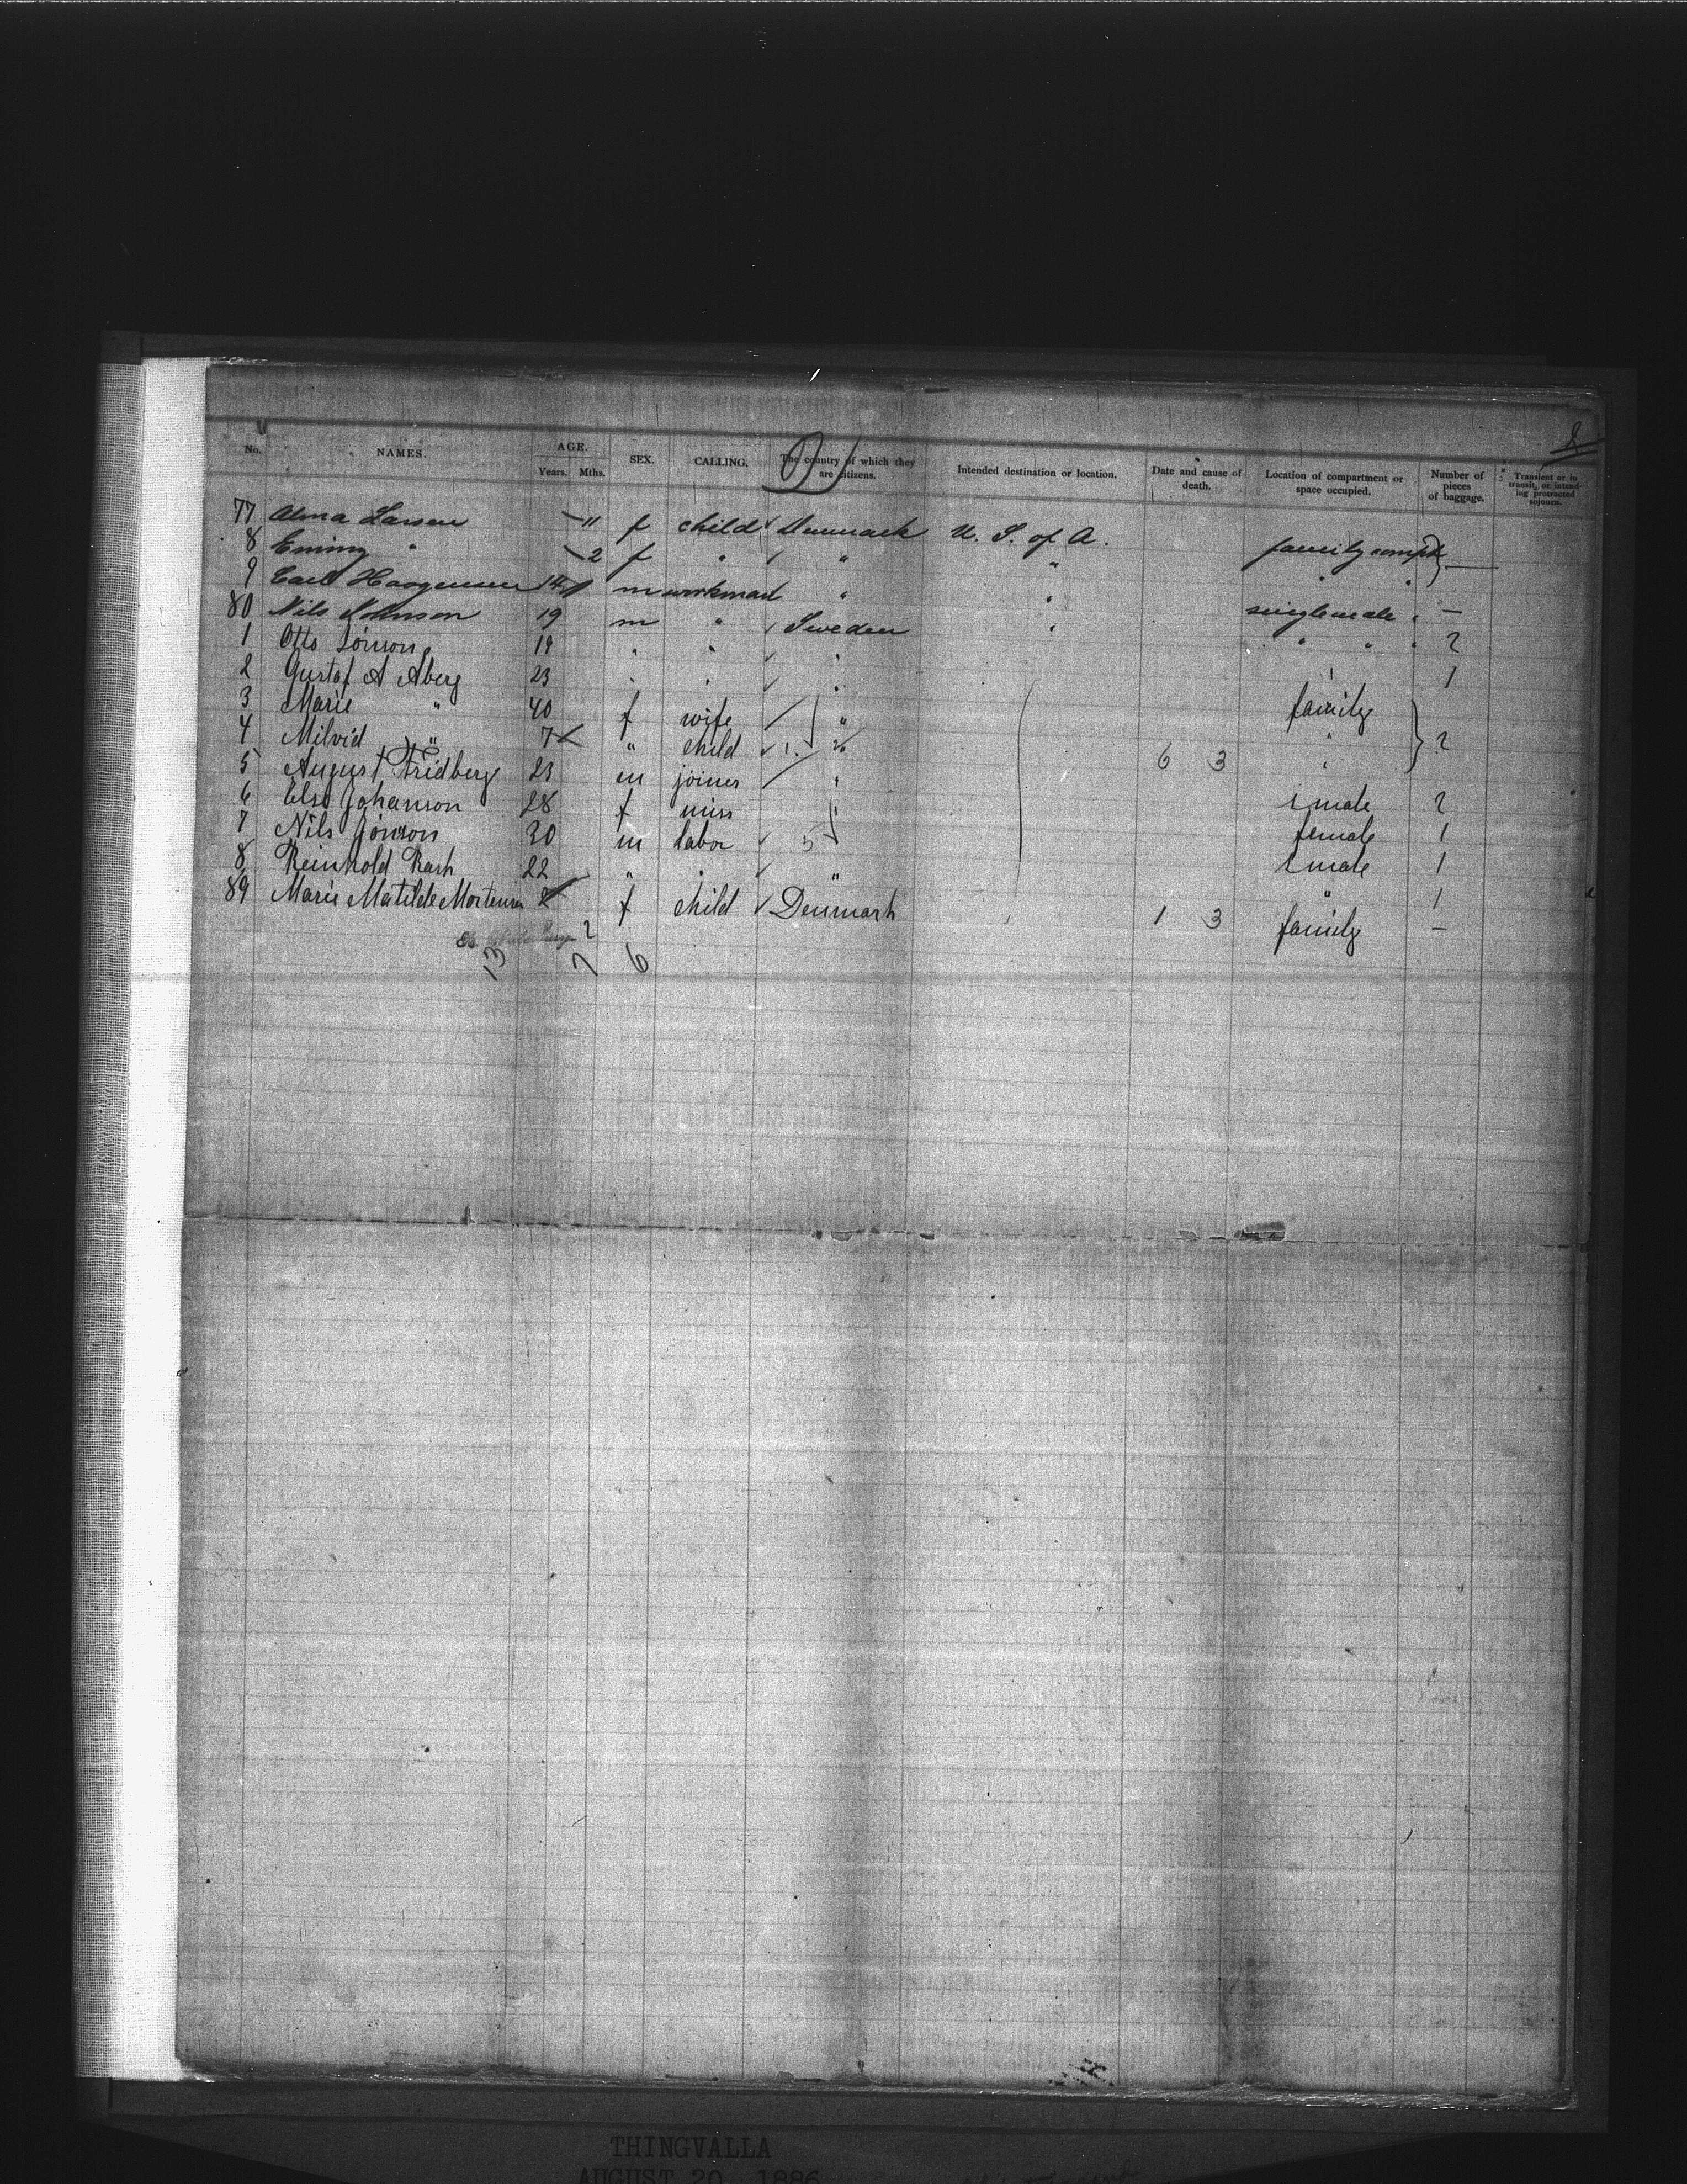 8
No. NAMES. AGE. Years. Mths. SEX. CALLING. The country of which they are citizens. Intended destination or location. Date and cause of death. Location of compartment or space occupied. Number of pieces of baggage. Transient or in transit, or intending protracted sojourn.
77 Alma Larsen 11 f child Denmark U. S. of A. family compt
8 Emmy " 2 f " " " " "
9 Carl Haagensen 14 m workman " " single male " —
80 Nils Johnson 19 m " Sweden " " " " 2
1 Otto Jönson 19 " " " 1
2 Gustaf A Aberg 23 " " "
3 Marie " 40 f wife " family
4 Milvid " 7 " child 1. " 6 3 " 2
5 August Fridberg 23 m joiner "
6 Else Johanson 28 f miss " s male 2
7 Nils Jönson 30 m labor 5 female 1
8 Reinhold Rash 22 " " " s male 1
89 Marie Matilde Mortensen f child Denmark 1 3 " 1
family —
13 7 6
THINGVALLA
AUGUST 20, 1886